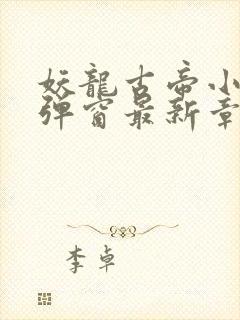 妖龍古帝小
弹窗最新章
李卓